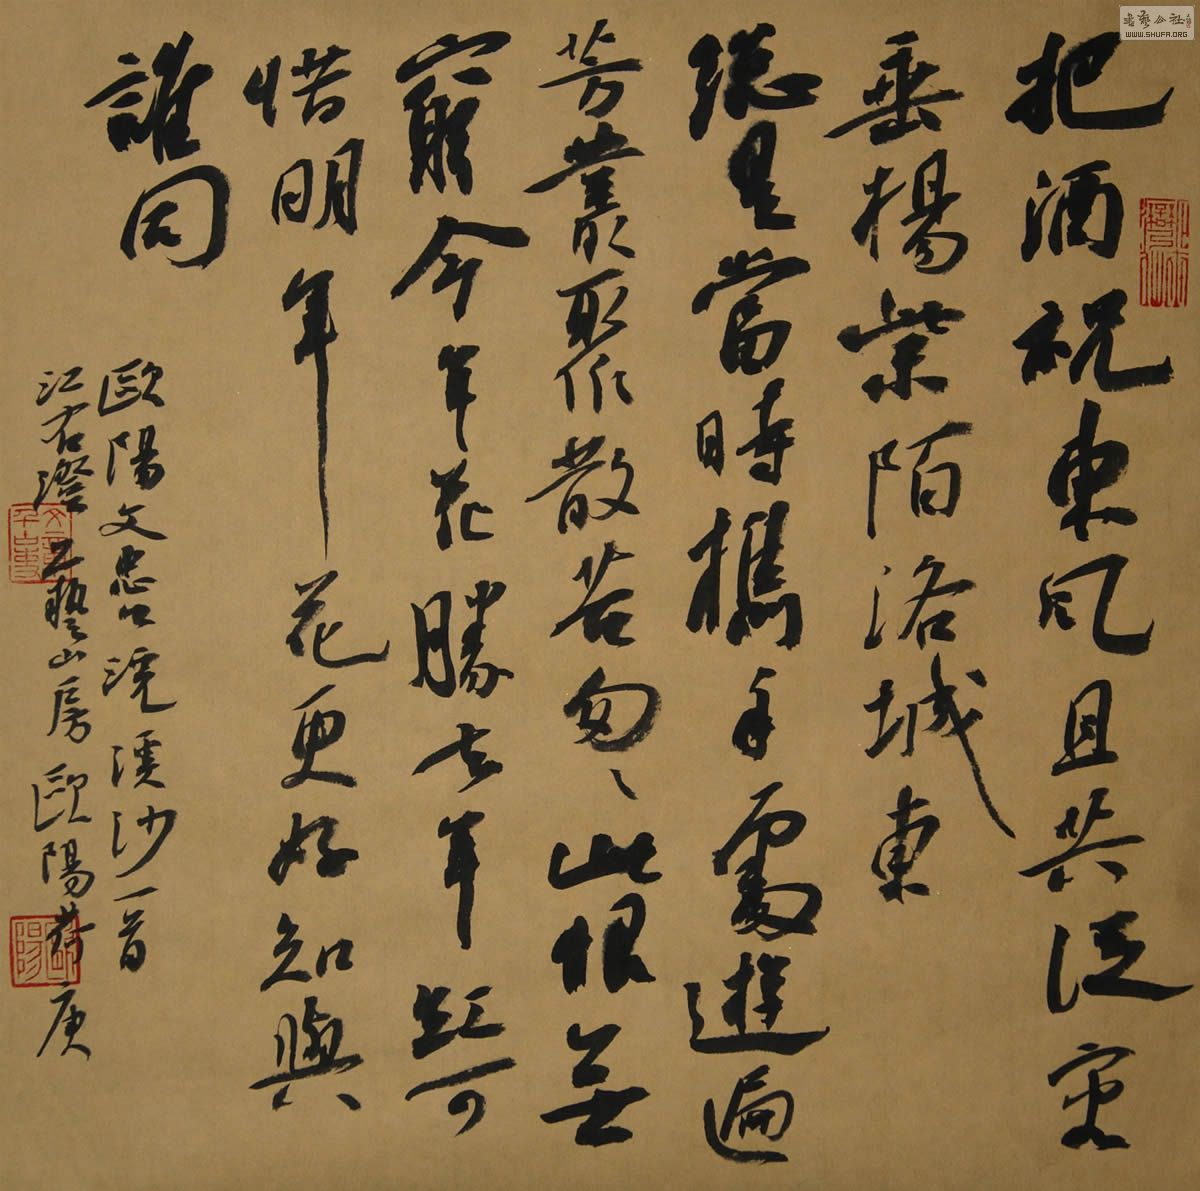 把酒祝東风且共從容
垂楊紫陌洛城東
總是當時攜手處遊遍
芳叢聚散苦匆匆此恨無
窮今年花勝去年紅可
惜明年花更好知與
誰同
歐陽文忠公浣溪沙一首
江右澄藝山房歐陽荷庚
歐陽
書藝公社
WWW.SHUFA.ORG